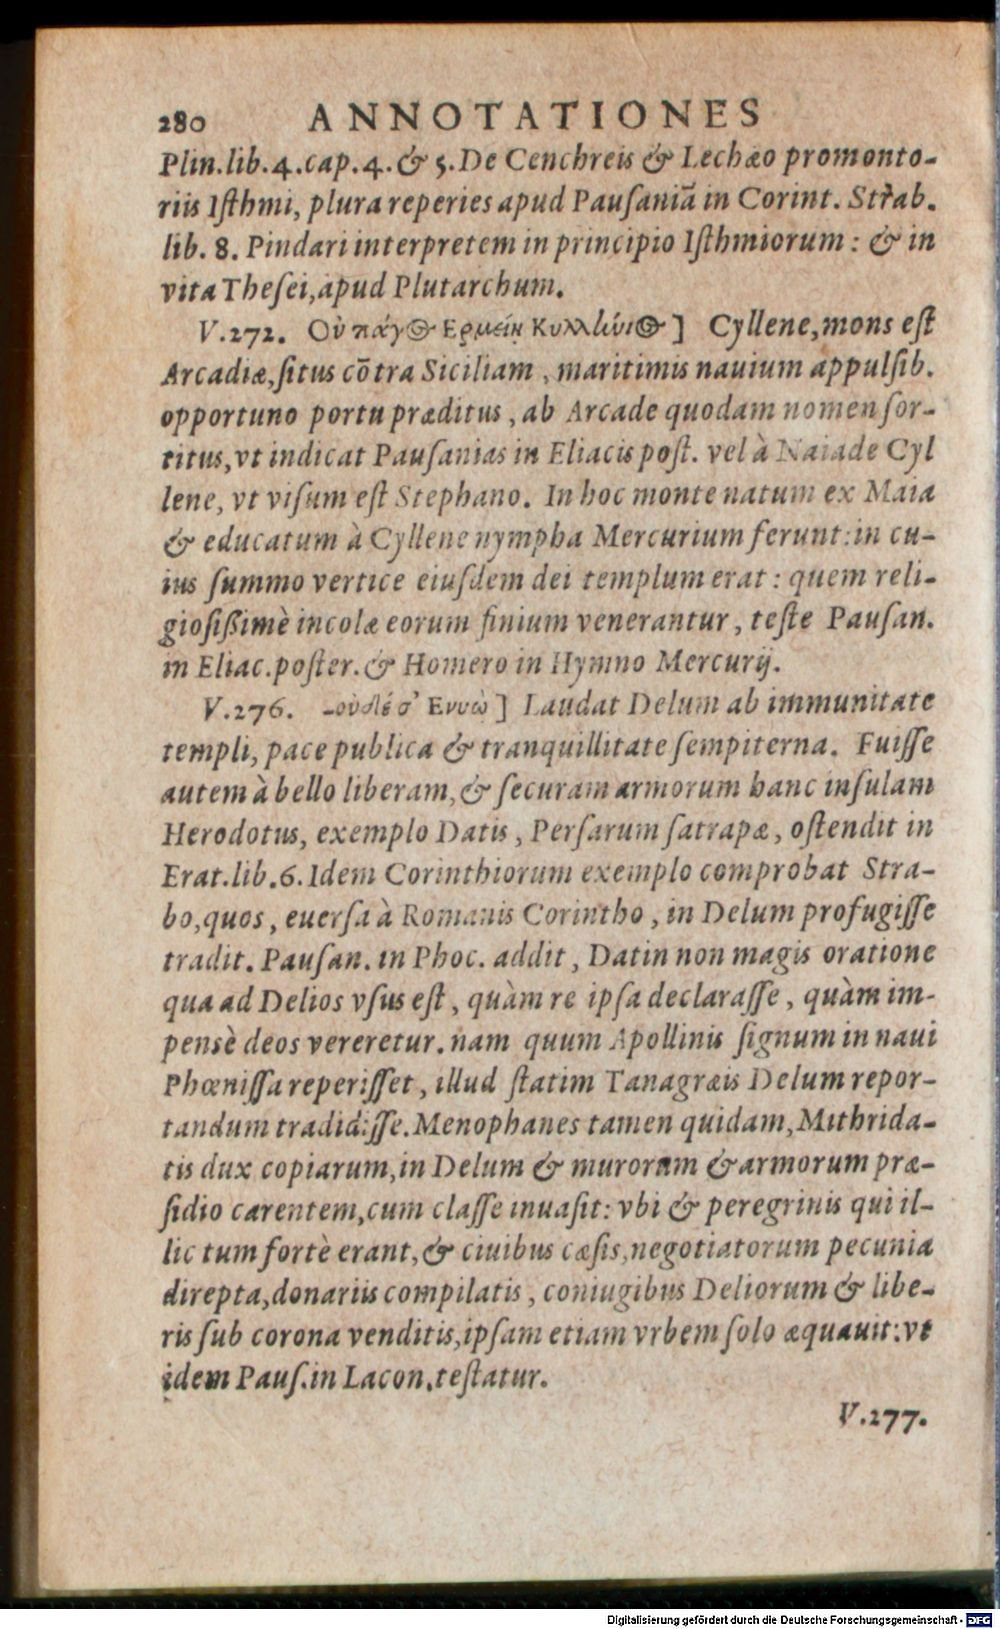 280 ANNOTATIONES
Plin.lib.4.cap.4.& 5.De Cenchreis & Lechæo promonto-
riis Iſthmi, plura reperies apud Pauſaniā in Corint. Strab.
lib. 8. Pindari interpretem in principio Iſthmiorum : & in
vita Theſei,apud Plutarchum.
V.272. Οὐ πάγος Ερμείη Κυλλλήνιος ] Cyllene,mons eſt
Arcadiæ,ſitus cōtra Siciliam , maritimis nauium appulſib.
opportuno portu præditus , ab Arcade quodam nomen ſor-
titus,vt indicat Pauſanias in Eliacis poſt. vel à Naiade Cyl
lene, vt viſum eſt Stephano. In hoc monte natum ex Maia
& educatum à Cyllene nympha Mercurium ferunt:in cu-
ius ſummo vertice eiuſdem dei templum erat : quem reli-
gioſiſsimè incolæ eorum finium venerantur , teſte Pauſan.
in Eliac.poſter.& Homero in Hymno Mercurij.
V.276. -οὐδέ σ' Ενυὼ ] Laudat Delum ab immunitate
templi, pace publica & tranquillitate ſempiterna. Fuiſſe
autem à bello liberam,& ſecuram armorum hanc inſulam
Herodotus, exemplo Datis , Perſarum ſatrapæ , oſtendit in
Erat.lib.6.Idem Corinthiorum exemplo comprobat Stra-
bo,quos , euerſa à Romanis Corintho , in Delum profugiſſe
tradit. Pauſan. in Phoc. addit , Datin non magis oratione
qua ad Delios vſus eſt , quàm re ipſa declaraſſe , quàm im-
pensè deos vereretur. nam quum Apollinis ſignum in naui
Phœniſſa reperiſſet , illud ſtatim Tanagræis Delum repor-
tandum tradidiſſe.Menophanes tamen quidam,Mithrida-
tis dux copiarum,in Delum & murorum & armorum præ-
ſidio carentem,cum claſſe inuaſit: vbi & peregrinis qui il-
lic tum fortè erant,& ciuibus cæſis,negotiatorum pecunia
direpta,donariis compilatis , coniugibus Deliorum & libe-
ris ſub corona venditis,ipſam etiam vrbem ſolo æquauit:vt
idem Pauſ.in Lacon.teſtatur.
V.277.
Digitalisierung gefördert durch die Deutsche Forschungsgemeinschaft - DFG